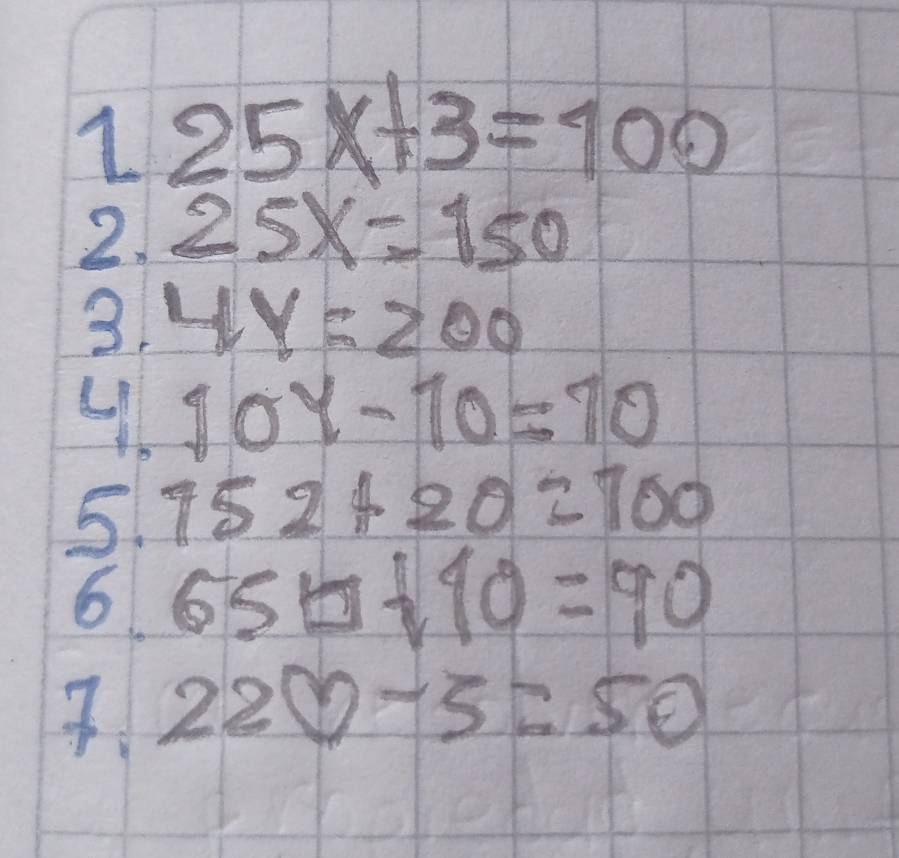 1 25X+3=100
2. 25X=150
3. 4Y=200
4. 10Y-10=10
5. 152+20=100
6. 65□+10=90
7. 22♡-5=50